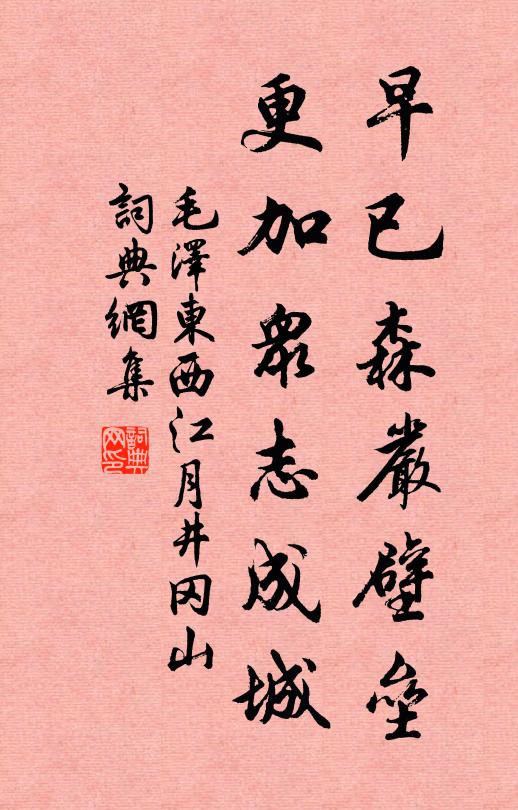 早已森嚴壁壘
更加眾志成城
毛澤東西江月井冈山
詞典網集
詞典网印